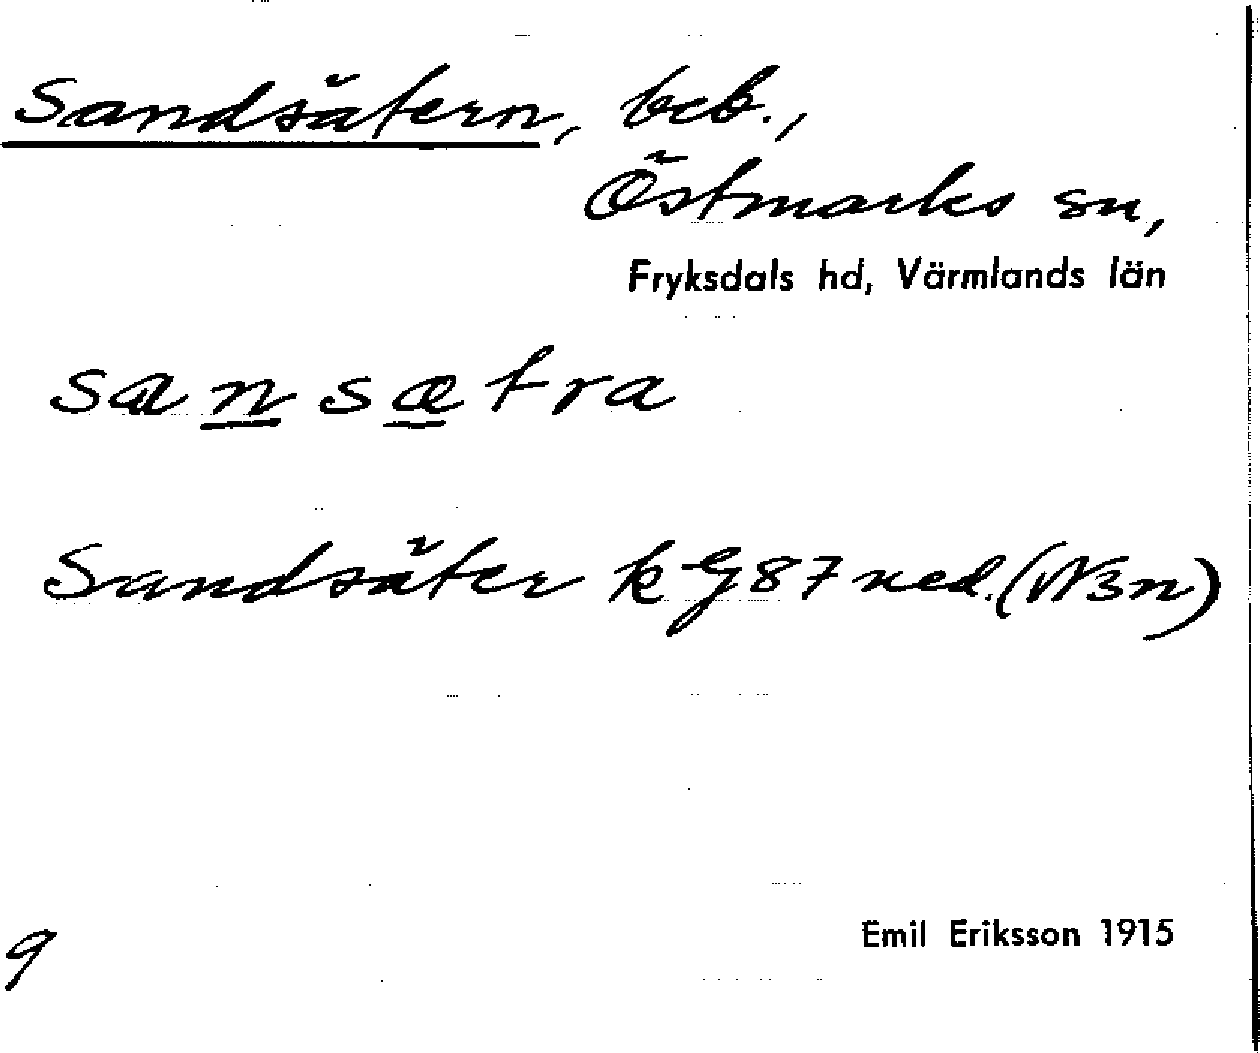 Sandsätern, beb.,
Östmarks sn,
Fryksdals hd, Värmlands län
sansætra
Sandsäter k G 87 ned. (W3n)
Emil Eriksson 1915
9